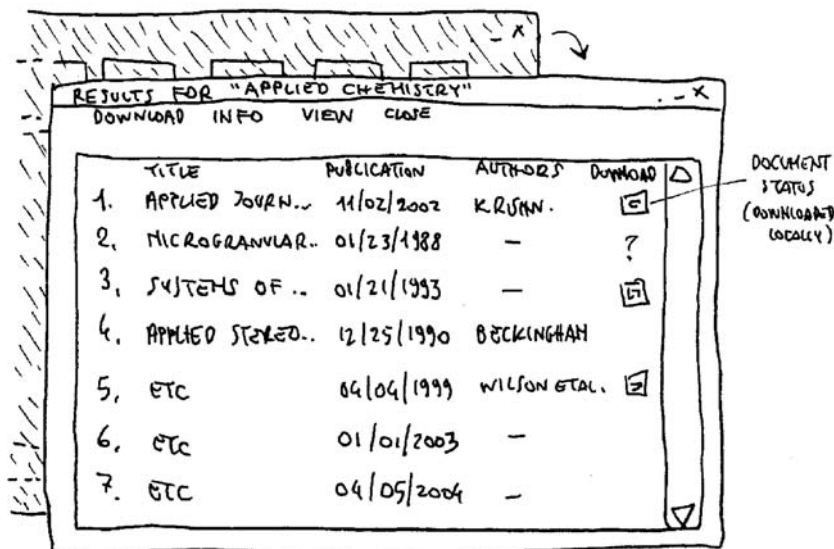 RESULTS FOR "APPLIED CHEMISTRY"
DOWNLOAD INFO VIEW CLOSE
TITLE PUBLICATION AUTHORS DOWNLOAD
1. APPLIED JOURN.. 11/02/2002 KRISHN.
2. MICROGRANULAR.. 01/23/1988 — ?
3. SYSTEMS OF .. 01/21/1993 —
4. APPLIED STEREO.. 12/25/1990 BECKINGHAM
5. ETC 04/04/1999 WILSON ET AL.
6. ETC 01/01/2003 —
7. ETC 04/05/2004 —
DOCUMENT
STATUS
(DOWNLOADED
LOCALLY)